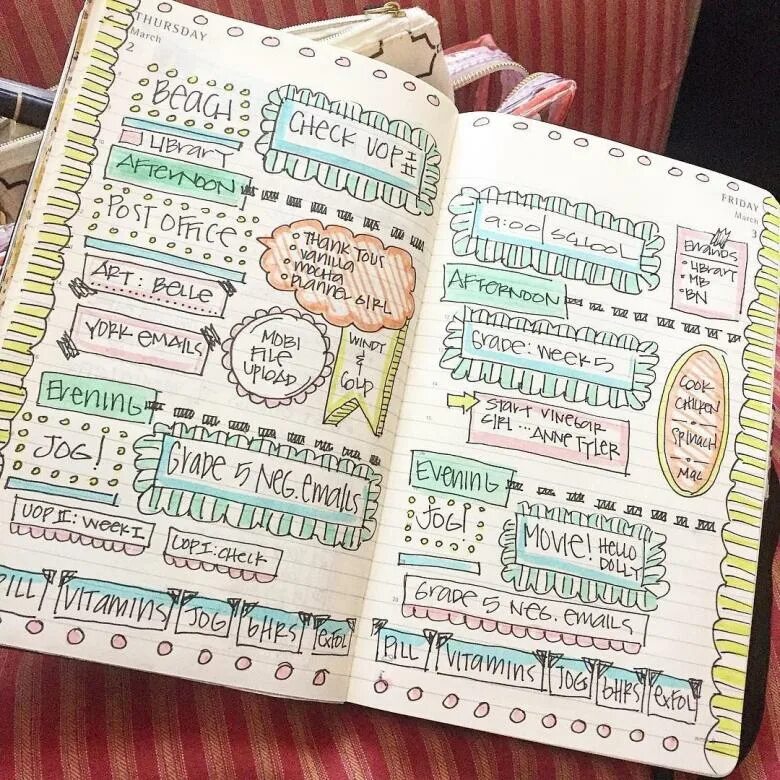 THURSDAY
March
2
BEACH
LIBRARY
CHECK UOP I
II
AFTERNOON
POST OFFICE
THANK YOUS
VANILLA
MOCHA
PLANNER GIRL
ART: BELLE
YORK EMAILS
MOBI
FILE
UPLOAD
WINDY
&
COLD
EVENING
JOG!
GRADE 5 NEG. EMAILS
UOP II: WEEK I
UOP I: CHECK
PILL
VITAMINS
JOG
6HRS
EXFOL
FRIDAY
March
3
9:00 SCHOOL
ERRANDS
LIBRARY
MB
BN
AFTERNOON
GRADE: WEEK 5
COOK
CHICKEN
SPINACH
MAC
START VINEGAR
GIRL ... ANNE TYLER
EVENING
JOG!
MOVIE! HELLO
DOLLY
GRADE 5 NEG. EMAILS
PILL
VITAMINS
JOG
6HRS
EXFOL